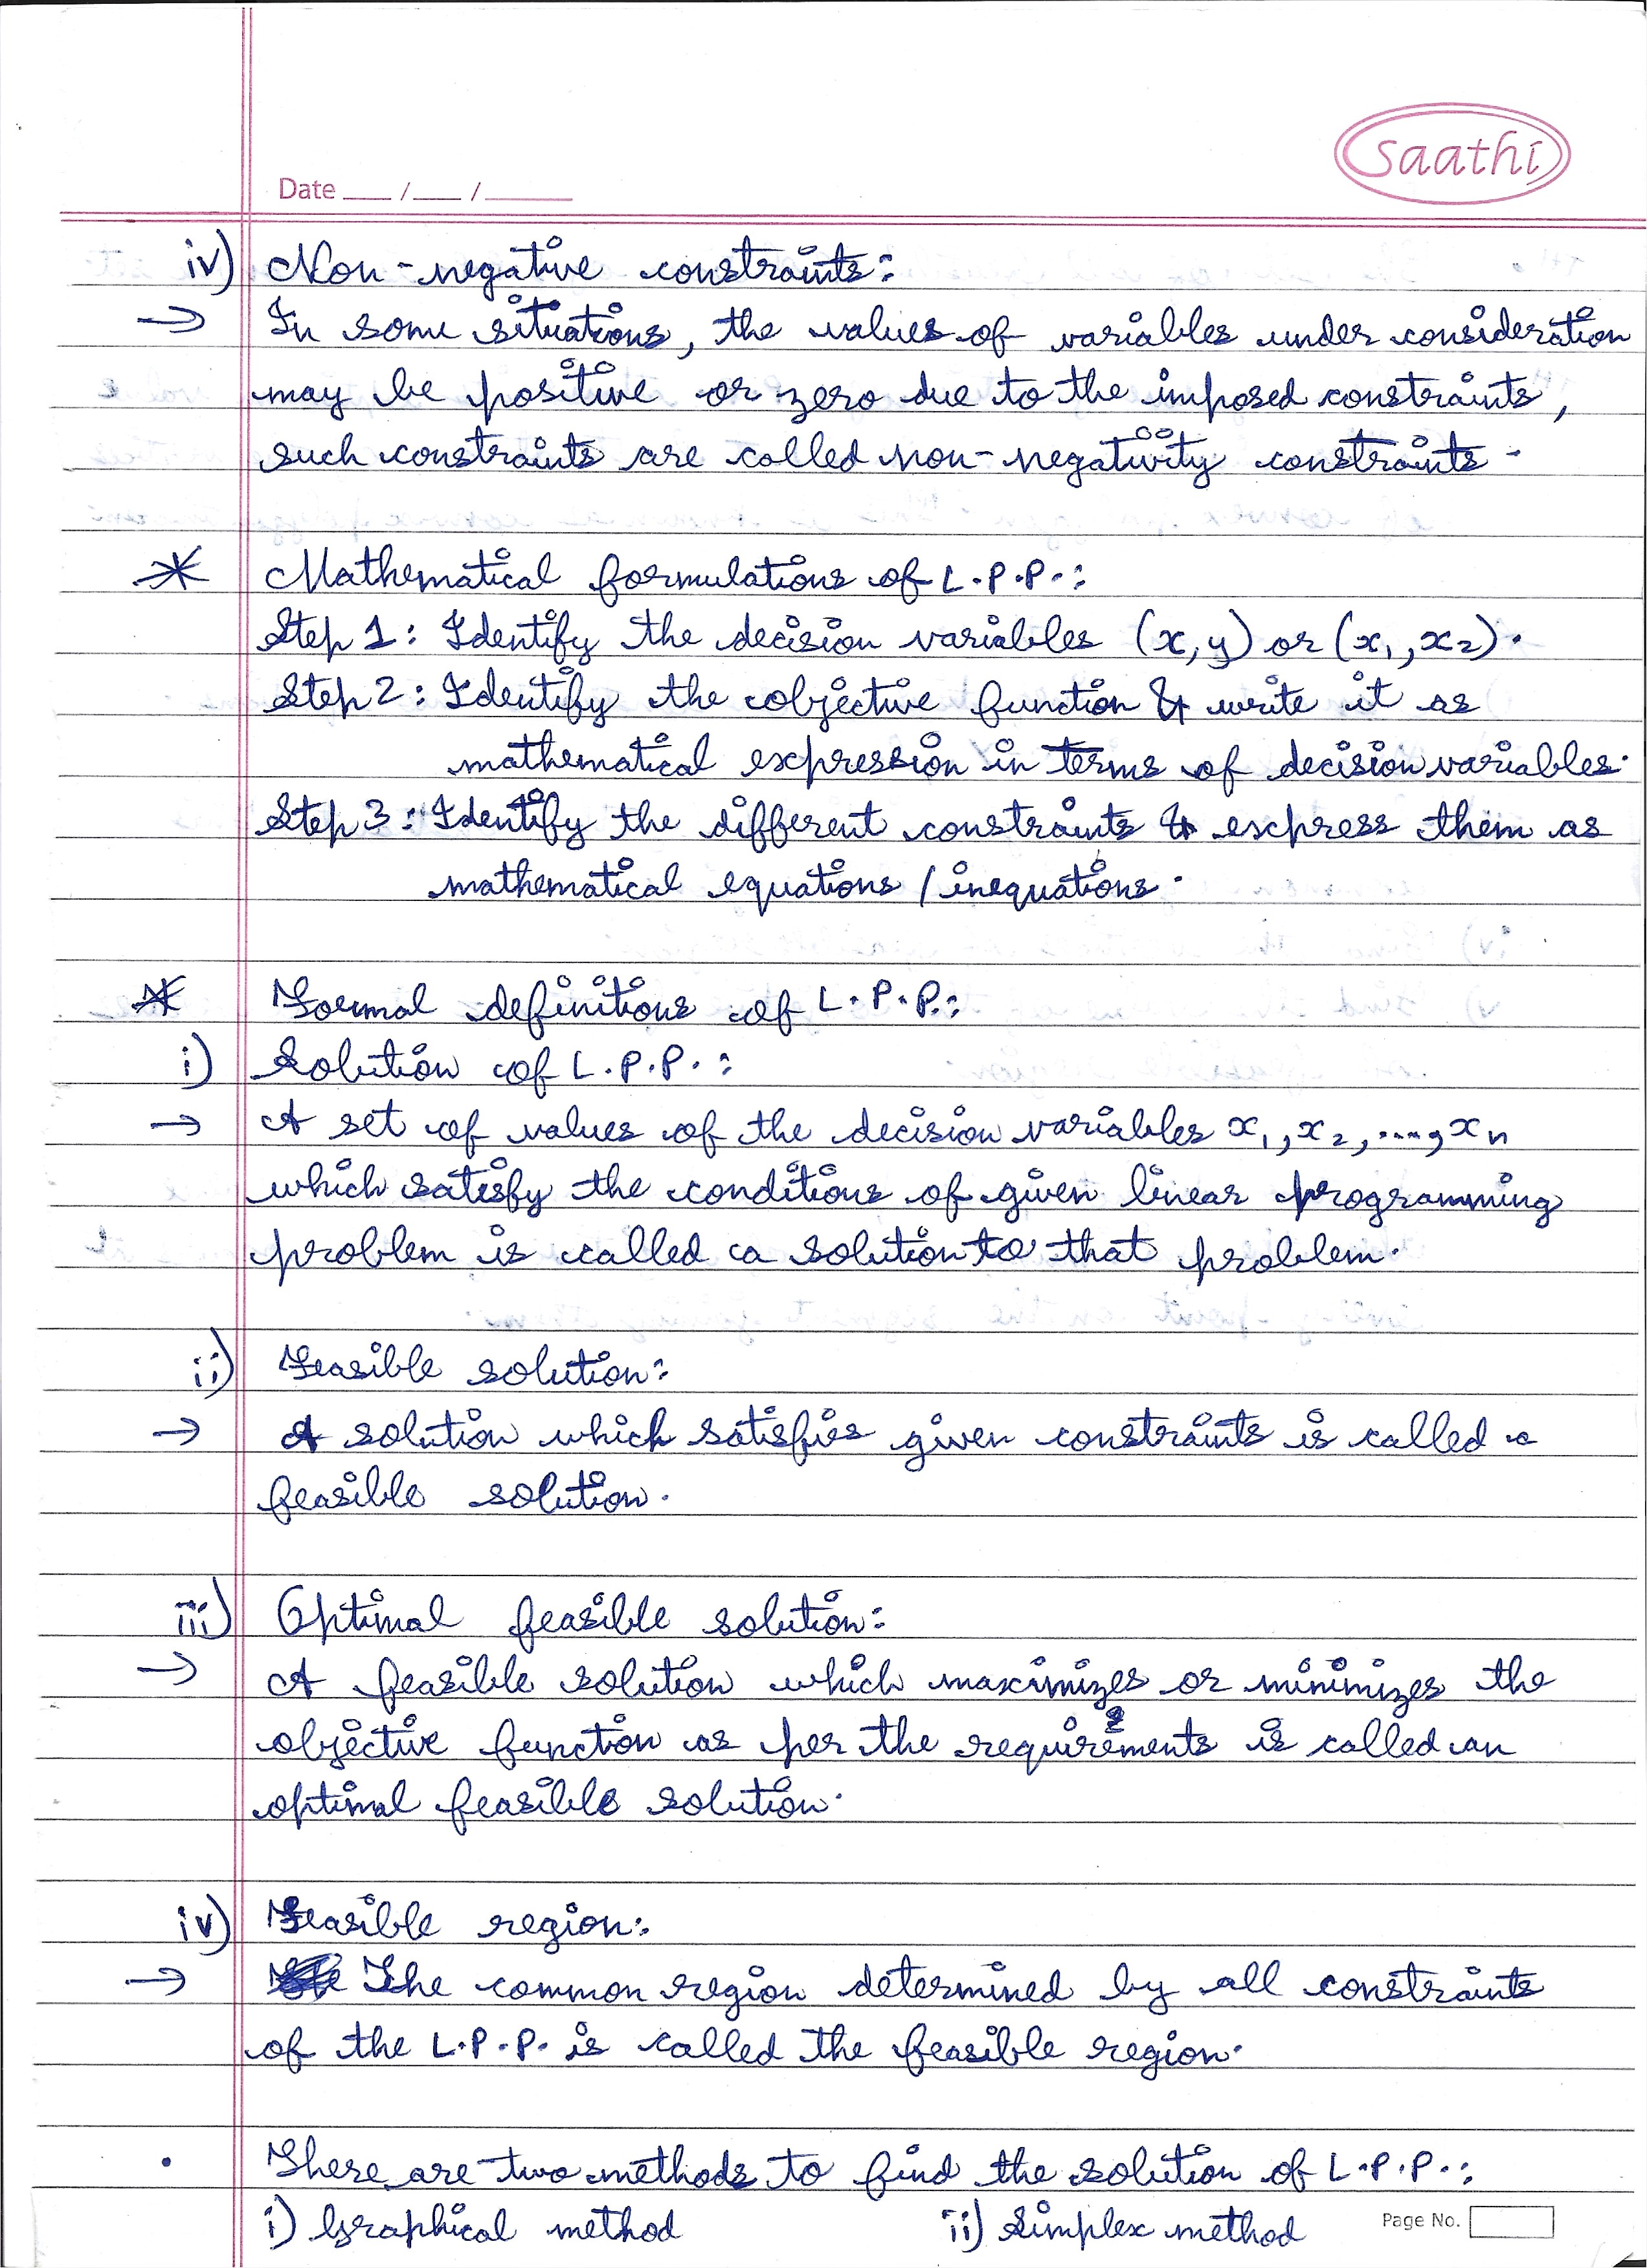 saathi
Date ___/___/______
iv) Non-negative constraints:
→ In some situations, the values of variables under consideration
may be positive or zero due to the imposed constraints,
such constraints are called non-negativity constraints.
* Mathematical formulations of L.P.P.:
Step 1: Identify the decision variables (x, y) or (x₁, x₂).
Step 2: Identify the objective function & write it as
mathematical expression in terms of decision variables.
Step 3: Identify the different constraints & express them as
mathematical equations / inequations.
* Formal definitions of L.P.P.:
i) Solution of L.P.P.:
→ A set of values of the decision variables x₁, x₂, ...., xₙ
which satisfy the conditions of given linear programming
problem is called a solution to that problem.
ii) Feasible solution:
→ A solution which satisfies given constraints is called a
feasible solution.
iii) Optimal feasible solution:
→ A feasible solution which maximizes or minimizes the
objective function as per the requirements is called an
optimal feasible solution.
iv) Feasible region:
→ The common region determined by all constraints
of the L.P.P. is called the feasible region.
• There are two methods to find the solution of L.P.P.:
i) Graphical method ii) Simplex method
Page No.